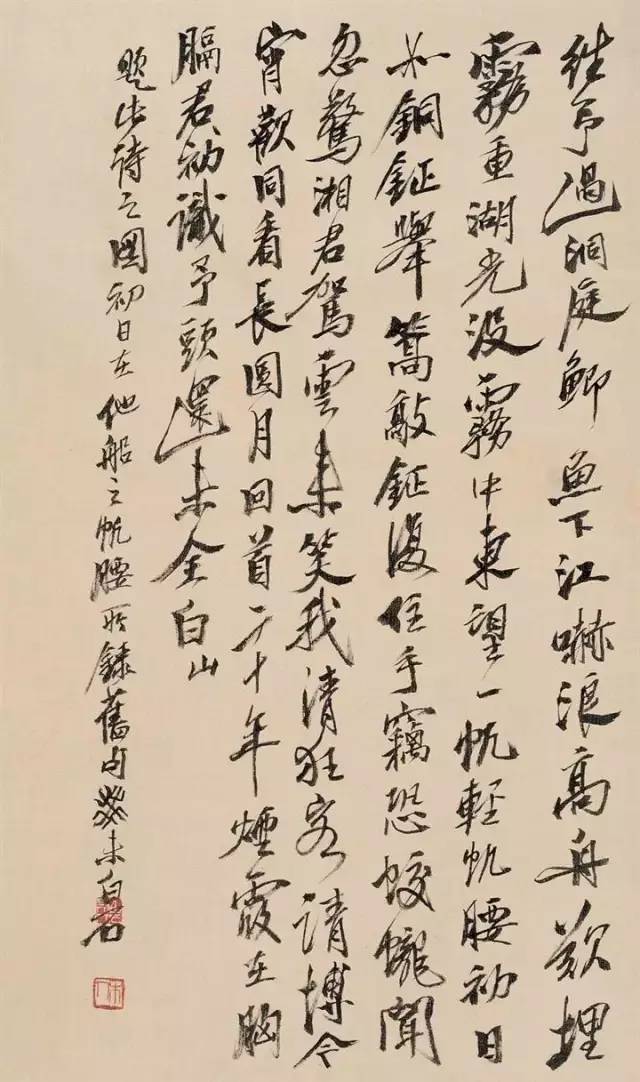 往予過洞庭鯽魚下江嚇浪高舟欲埋
霧重湖光沒霧中東望一帆輕帆腰初日
如銅鉦舉篙敲鉦復住手竊恐蛟蠬聞
忽驚湘君駕雲來笑我清狂客請博今
宵歡同看長圓月回首二十年煙霞在胸
膈君初識予頭還未全白山
題此詩之圖初日在他船之帆腰所錄舊句癸未白石